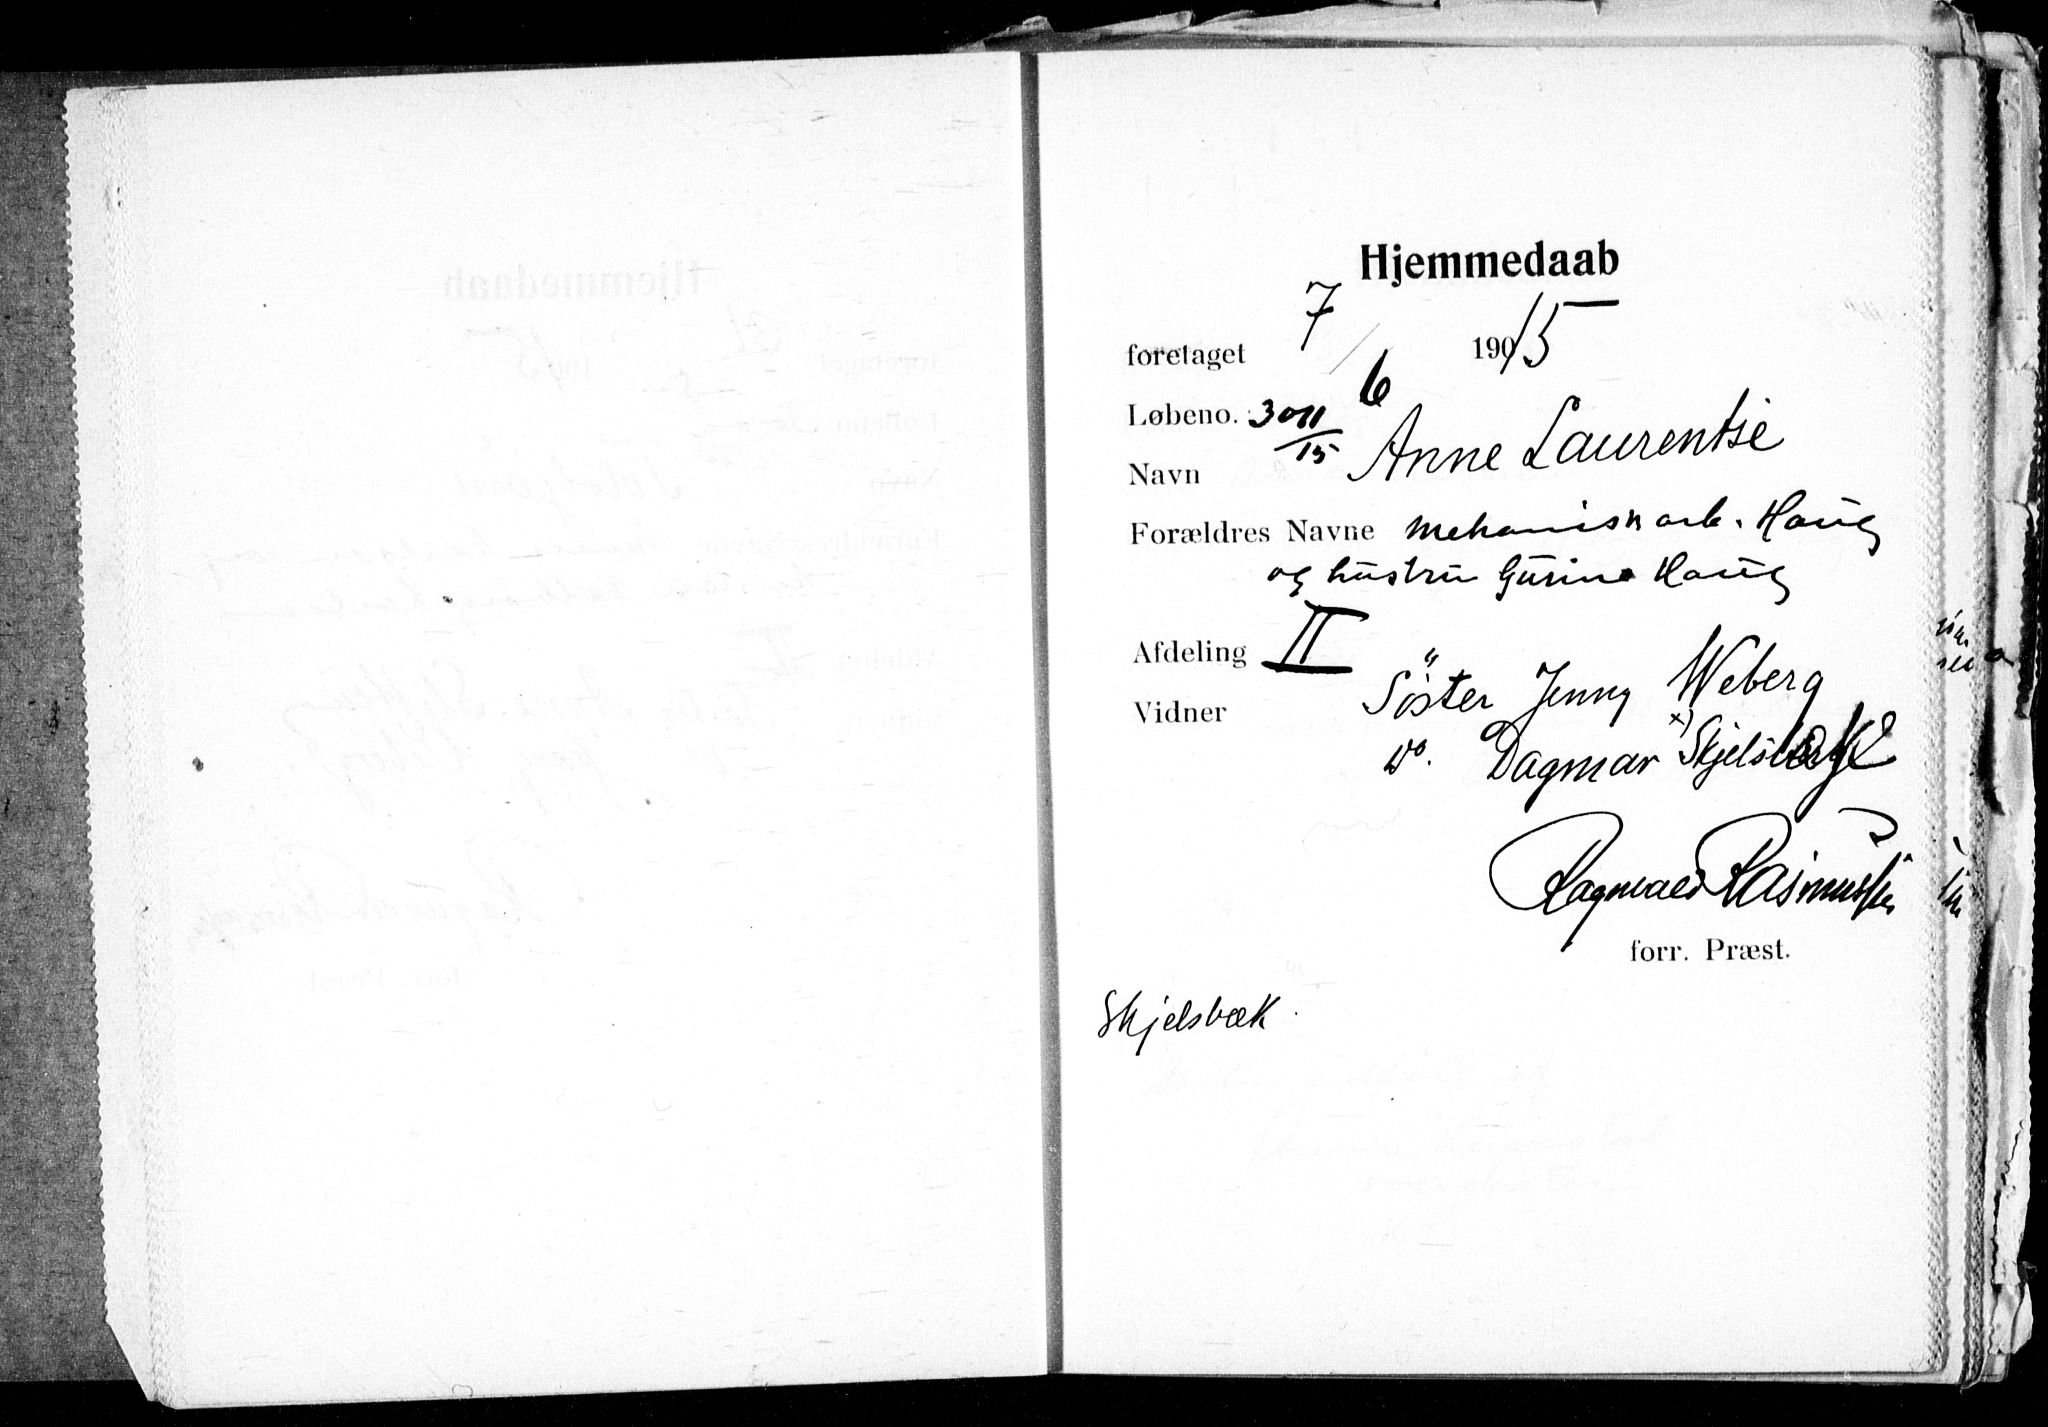 Hjemmedaab
foretaget 7/6 1915
Løbeno. 3011/15
Navn Anne Laurentse
Forældres Navne mekanisk arb. Haug
og hustru Gurine Haug
Afdeling II
Vidner Söster Jenny Weberg
Do. Dagmar x) Skjelsbæk
Ragnvald Rasmussen
forr. Præst.
Skjelsbæk